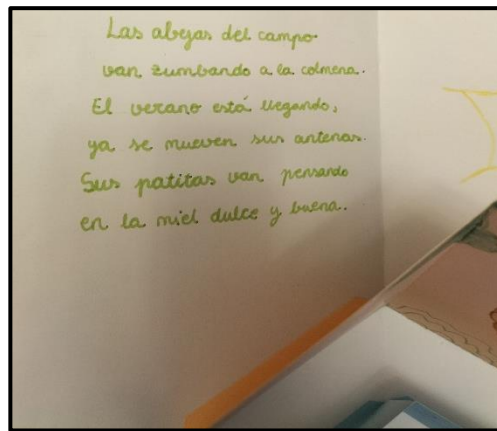 Las abejas del campo
van zumbando a la colmena.
El verano está llegando,
ya se mueven sus antenas.
Sus patitas van pensando
en la miel dulce y buena.